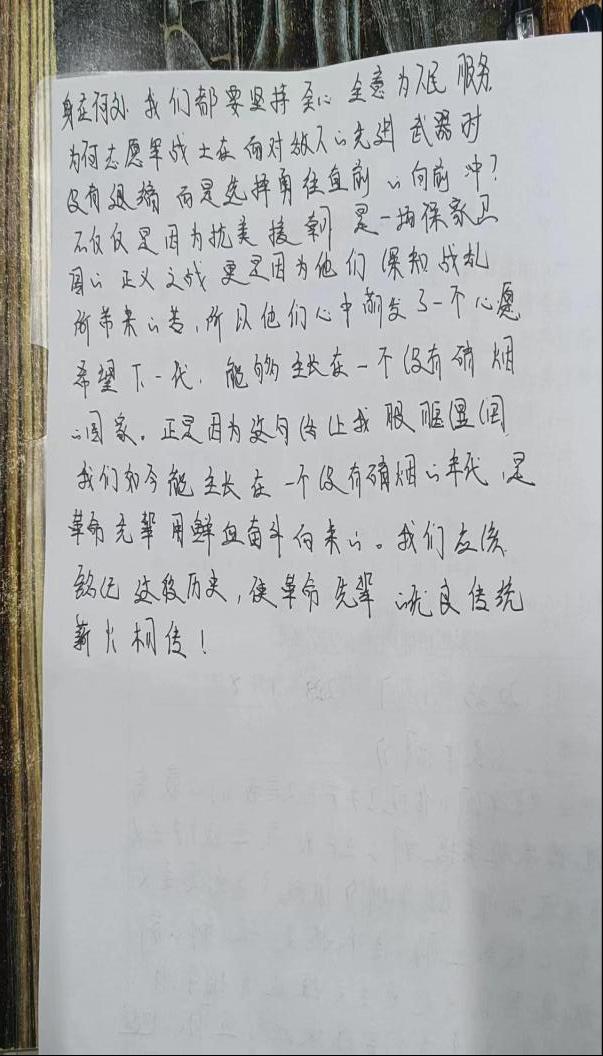 身在何处 我们都要坚持全心全意为人民服务.
为何志愿军战士在面对敌人的先进武器时
没有退缩 而是选择勇往直前的向前冲?
不仅仅是因为抗美援朝是一场保家卫
国的正义之战 更是因为他们深知战礼
所带来的苦,所以他们心中萌发了一个心愿
希望下一代.能够生长在一个没有硝烟
的国家。正是因为这句话让我眼眶湿润
我们如今能生长在一个没有硝烟的年代,是
革命先辈用鲜血奋斗而来的。我们应该
铭记这段历史,使革命先辈的优良传统
薪火相传!